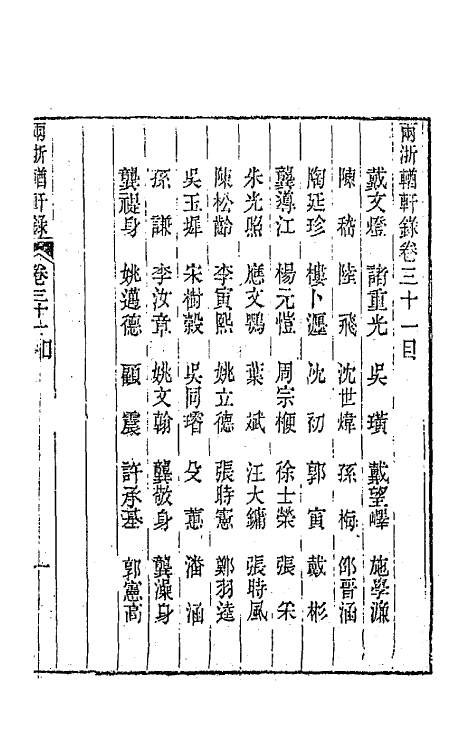 兩浙輶軒錄卷三十一目
戴文燈　諸重光　吳璜　戴望嶧　施學濂
陳嵇　陸飛　沈世煒　孫梅　邵晉涵
陶延珍　樓卜瀍　沈初　郭寅　戴彬
龔導江　楊元愷　周宗楩　徐士榮　張朵
朱光照　應文鸚　葉斌　汪大鏞　張時風
陳松齡　李寅熙　姚立德　張時憲　鄭羽逵
吳玉墀　宋樹穀　吳同璿　殳蕙　潘涵
孫謙　李汝章　姚文翰　龔敬身　龔澡身
龔禔身　姚邁德　顧震　許承基　郭憲高
兩浙輶軒錄　卷三十一目　一